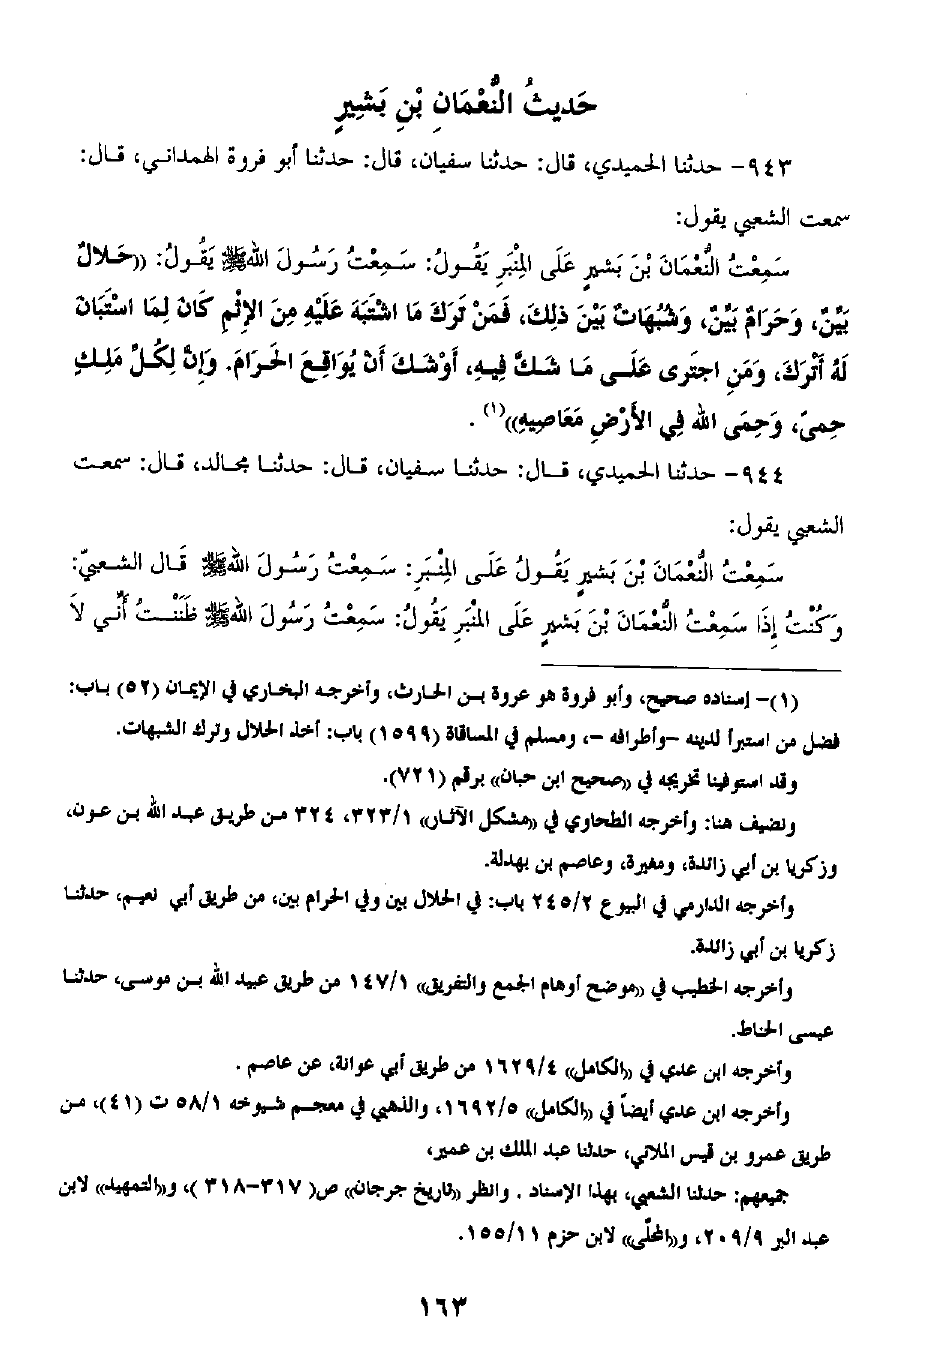 حَديثُ النُّعْمَانِ بْنِ بَشِيرٍ
٩٤٣- حدثنا الحميدي، قال: حدثنا سفيان، قال: حدثنا أبو فروة الهمداني، قال:
سمعت الشعبي يقول:
سَمِعْتُ النُّعْمَانَ بْنَ بَشيرٍ عَلَى المِنْبَرِ يَقُولُ: سَمِعْتُ رَسُولَ اللهِ ﷺ يَقُولُ: ((حَلالٌ
بَيِّنٌ، وَحَرَامٌ بَيِّنٌ، وَشُبُهَاتٌ بَيْنَ ذلِكَ، فَمَنْ تَرَكَ مَا اشْتَبَهَ عَلَيْهِ مِنَ الإِثْمِ كَانَ لِمَا اسْتَبَانَ
لَهُ أَتْرَكَ، وَمَنِ اجتَرى عَلَى مَا شَكَّ فِيهِ، أَوْشَكَ أَنْ يُوَاقِعَ الحَرَامَ. وَإِنَّ لِكُلِّ مَلِكٍ
حِمىً، وَحِمَى اللهِ فِي الأَرْضِ مَعَاصِيهِ))(١) .
٩٤٤- حدثنا الحميدي، قال: حدثنا سفيان، قال: حدثنا مجالد، قال: سمعت
الشعبي يقول:
سَمِعْتُ النُّعْمَانَ بْنَ بَشيرٍ يَقُولُ عَلَى المِنْبَرِ: سَمِعْتُ رَسُولَ اللهِ ﷺ قَالَ الشعبيّ:
وَكُنْتُ إِذَا سَمِعْتُ النُّعْمَانَ بْنَ بَشيرٍ عَلَى المِنْبَرِ يَقُولُ: سَمِعْتُ رَسُولَ اللهِ ﷺ ظَنَنْتُ أَنِّي لاَ
(١)- إسناده صحيح، وأبو فروة هو عروة بن الحارث، وأخرجه البخاري في الإيمان (٥٢) باب:
فضل من استبرأ لدينه -وأطرافه -، ومسلم في المساقاة (١٥٩٩) باب: أخذ الحلال وترك الشبهات.
وقد استوفينا تخريجه في ((صحيح ابن حبان)) برقم (٧٢١).
ونضيف هنا: وأخرجه الطحاوي في ((مشكل الآثار)) ٣٢٣/١، ٣٢٤ من طريق عبد الله بن عون،
وزكريا بن أبي زائدة، ومغيرة، وعاصم بن بهدلة.
وأخرجه الدارمي في البيوع ٢٤٥/٢ باب: في الحلال بين وفي الحرام بين، من طريق أبي نعيم، حدثنا
زكريا بن أبي زائدة.
وأخرجه الخطيب في ((موضح أوهام الجمع والتفريق)) ١٤٧/١ من طريق عبيد الله بن موسى، حدثنا
عيسى الحناط.
وأخرجه ابن عدي في ((الكامل)) ١٦٢٩/٤ من طريق أبي عوانة، عن عاصم .
وأخرجه ابن عدي أيضاً في ((الكامل)) ١٦٩٢/٥، والذهبي في معجم شيوخه ٥٨/١ ت (٤١)، من
طريق عمرو بن قيس الملائي، حدثنا عبد الملك بن عمير،
جميعهم: حدثنا الشعبي، بهذا الإسناد . وانظر ((تاريخ جرجان)) ص( ٣١٧-٣١٨ )، و((التمهيد)) لابن
عبد البر ٢٠٩/٩، و((المحلّى)) لابن حزم ١٥٥/١١.
١٦٣